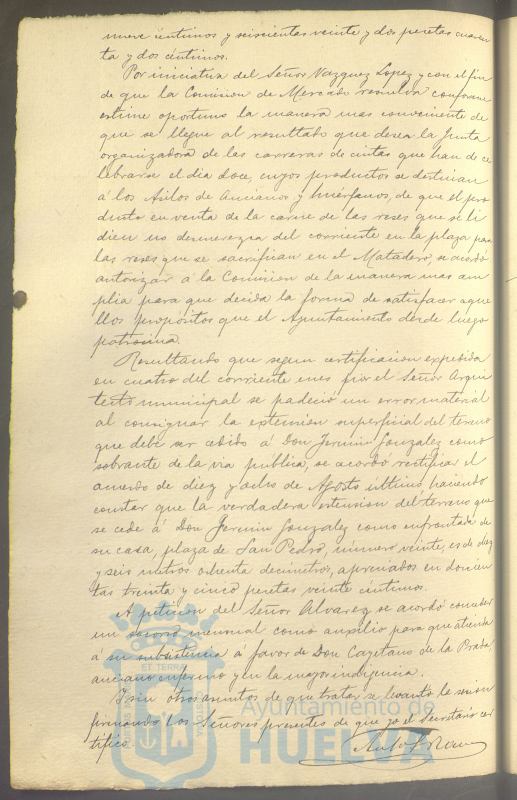 nueve céntimos y seiscientas veinte y dos pesetas cuaren
ta y dos céntimos.
Por iniciativa del Señor Vazquez Lopez y con el fin
de que la Comision de Mercado resuelva conforme
estime oportuno la manera mas conveniente de
que se llegue al resultado que desea la Junta
organizadora de las carreras de cintas que han de ce
lebrarse el dia doce, cuyos productos se destinan
á los Asilos de Ancianos y huérfanos, de que el pro
ducto en venta de la carne de las reses que se li
dien no desmerezca del corriente en la plaza para
las reses que se sacrifican en el Matadero, se acordó
autorizar á la Comision de la manera mas am
plia para que decida la forma de satisfacer aque
llos propósitos que el Ayuntamiento desde luego
patrocina.
Resultando que segun certificacion expedida
en cuatro del corriente mes por el Señor Arqui
tecto municipal se padeció un error material
al consignar la extension superficial del terreno
que debe ser cedido á Don Fermin Gonzalez como
sobrante de la via publica, se acordó rectificar el
acuerdo de diez y ocho de Agosto último haciendo
constar que la verdadera extension del terreno que
se cede á Don Fermin Gonzalez como enfrontada de
su casa, plaza de San Pedro, número veinte, es de diez
y seis metros ochenta decímetros, apreciados en doscien
tas treinta y cinco pesetas veinte céntimos.
A peticion del Señor Alvarez se acordó conceder
un socorro mensual como auxilio para que atienda
á su subsistencia á favor de Don Cayetano de la Prada
anciano enfermo y en la mayor indigencia.
Y sin otros asuntos de que tratar se levantó la sesion
firmando los Señores presentes de que yo el Secretario cer
tifico.
ET TERRA
Ayuntamiento de
HUELVA